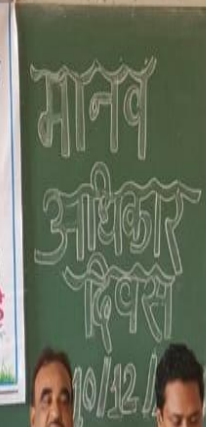 मानव
अधिकार
दिवस
10/12/